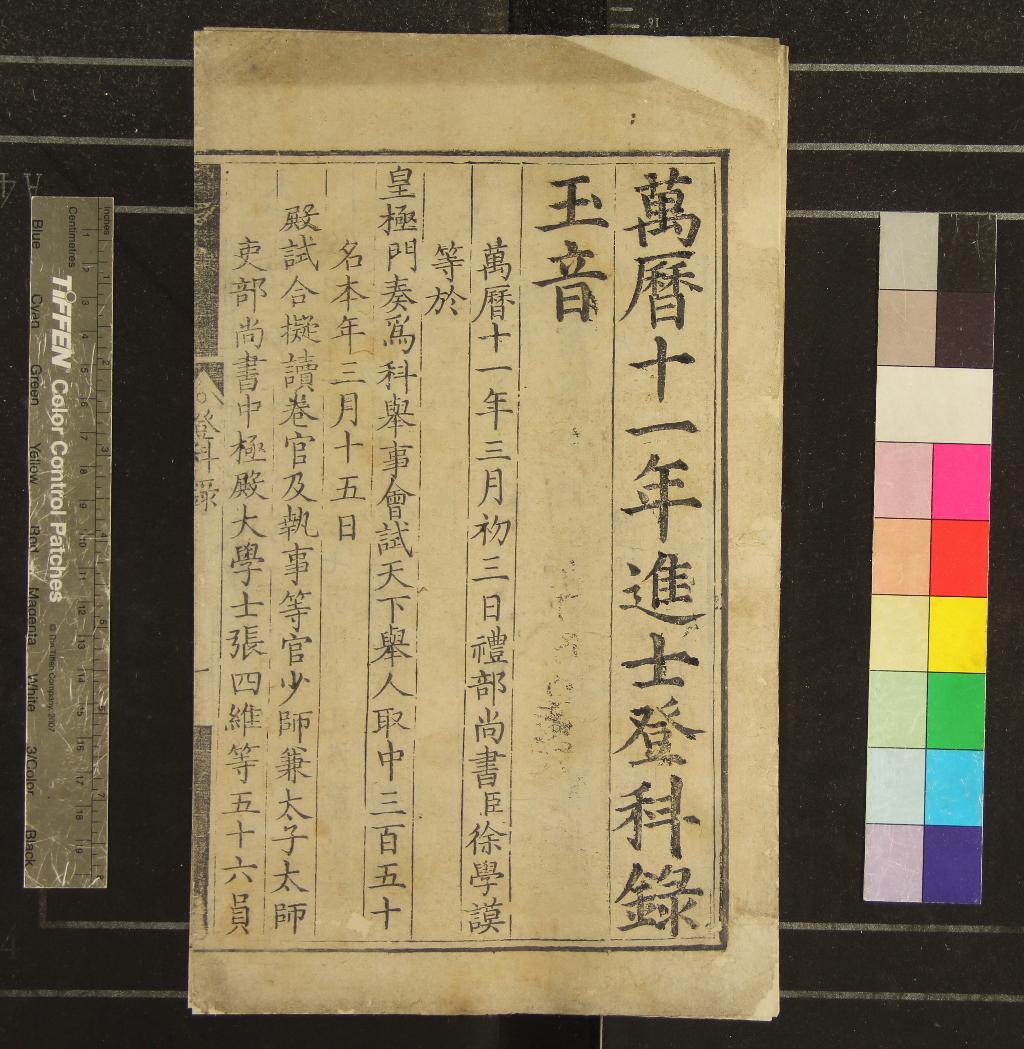 萬曆十一年進士登科錄
玉音
萬曆十一年三月初三日禮部尚書臣徐學謨
等於
皇極門奏爲科舉事會試天下舉人取中三百五十
名本年三月十五日
殿試合擬讀卷官及執事等官少師兼太子太師
吏部尚書中極殿大學士張四維等五十六員
登科錄
一
Inches
Centimetres
TIFFEN Color Control Patches
© The Tiffen Company, 2007
Blue Cyan Green Yellow Red Magenta White 3/Color Black
A4
16